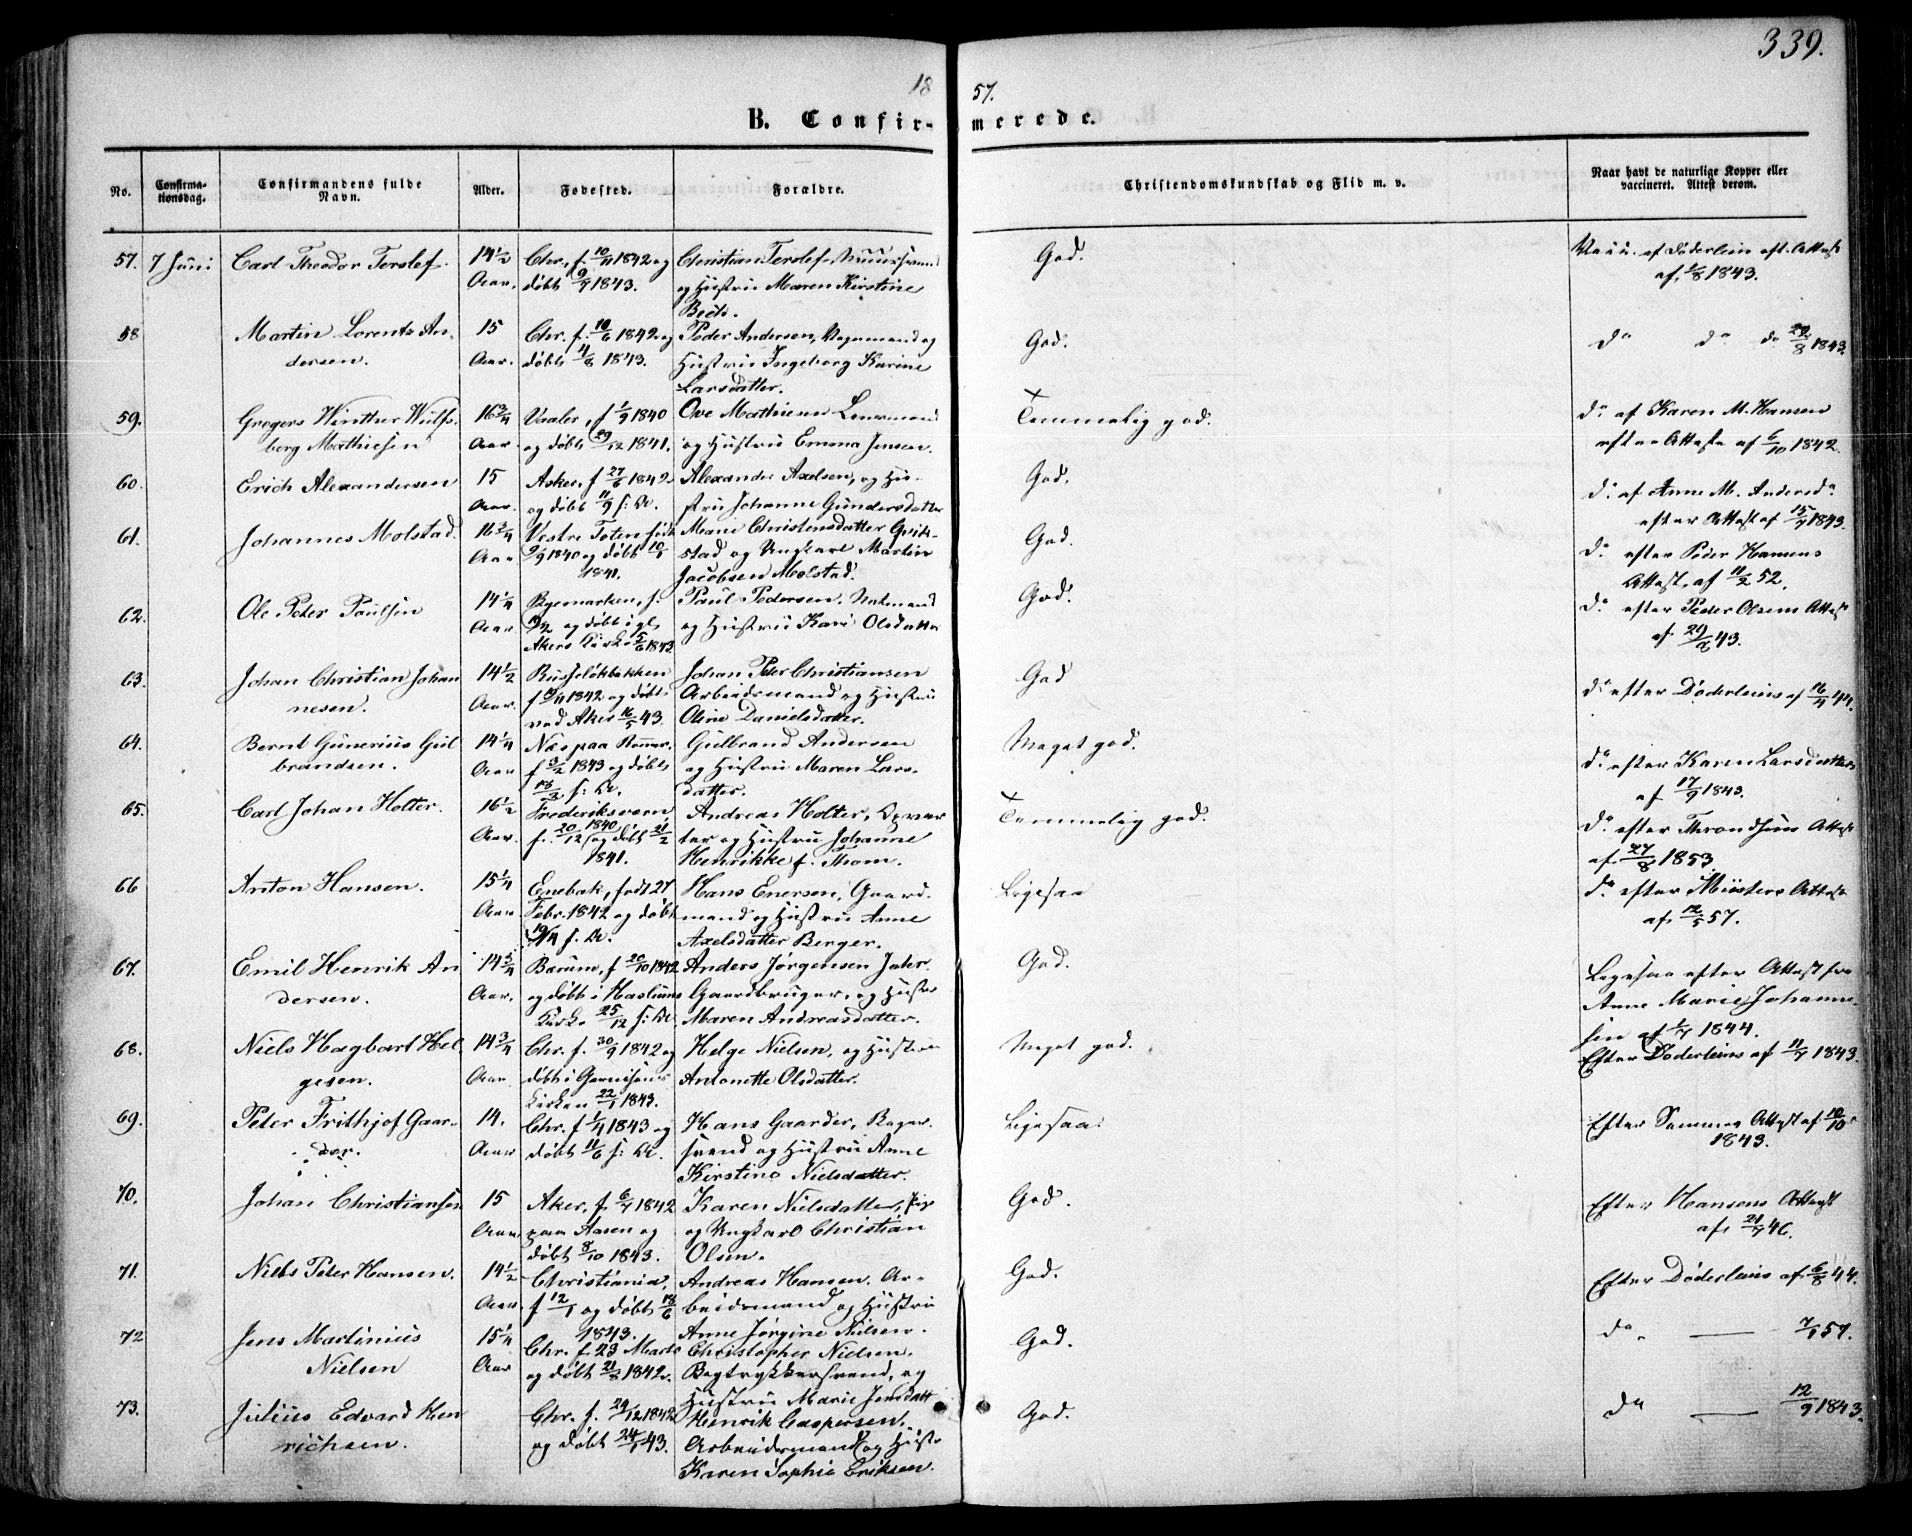 339.
18 57.
B. Confirmerede.
No.
Confirmationsdag.
Confirmandens fulde Navn.
Alder.
Fødested.
Forældre.
Christendomskundskab og Flid m. v.
Naar havt de naturlige Kopper eller vaccineret. Attest derom.
57. 7 Juni Carl Theodor Terslef. 14 1/2 Aar. Chr., f. 10/11 1842 og døbt 9/9 1843. Christian Terslef, Muursvend og Hustru Maren Kirstine God. Vacc. af Døderlein eft. Attest af 1843.
58 Martin Lorentz Andersen. 15 Aar. Chr. f. 10/6 1842 og døbt 4/8 1843. Peder Andersen, Vognmand og Hustru Ingeborg Karine Larsdatter. God. do do do 22/8 1843.
59. Gregers Winther Wulfsberg Mathiesen 16 3/4 Aar. Vaaler, f 1/9 1840 og døbt 29/12 1841. Ove Mathiesen Lensmand og Hustru Emma Jensen. Temmelig god. do af Karen M. Hansen efter Attest af 6/10 1842.
60. Erich Alexandersen 15 Aar. Asker, f 27/6 1842 og døbt 11/9 s: A. Alexander Axelsen, og Hustru Johanne Gundersdatter God. do af Anne M. Andersd. efter Attest af 15/9 1843.
61. Johannes Molstad 16 3/4 Aar Vestre Toten født 9/9 1840 og døbt 10/1 1841. Marie Christensdatter Qvikstad og Ungkarl Martin Jacobsen Molstad. God. do efter Peder Hansens Attest, af 11/2 52.
62. Ole Peter Paulsen 14 1/4 Aar. Bymarken, f. og døbt i gl. Akers Kirke 5/6 1843 Paul Pedersen, Natmand og Hustru Kari Olsdatter God. do efter Peder Olsens Attest af 29/9 43.
63. Johan Christian Johannesen. 14 1/2 Aar. Russeløkbakken f 1842 og døbt ved Aker 16/5 43. Johan Peter Christiansen Arbeidsmand og Hustru Oline Danielsdatter. God do efter Døderleins af 16/4 44.
64. Bernt Gunerius Gulbrandsen. 14 1/4 Aar Næs paa Romer. f 3/2 1843 og døbt 18/3 s: A. Gulbrand Andersen og Hustru Maren Larsdatter. Meget god. do efter Karen Larsdatters af 17/9 1843.
65. Carl Johan Holter. 16 1/2 Aar. Frederiksværn, f. 20/12 1840 og døbt 21/2 1841. Andreas Holter, og Hustru Johanne Henrikke f. Thom. Temmelig god. do efter Throndsens Attest af 27/8 1853
66 Anton Hansen. 15 1/4 Aar Enebak, født 27 Febr. 1842 og døbt 10/4 s. A. Hans Enersen, Gaardmand og Hustru Anne Axelsdatter Berger. Ligesaa do efter Müsters Attest af 12/5 57.
67. Emil Henrik Andersen. 14 3/4 Aar. Bærum, f 20/10 1842 og døbt i Haslums Kirke 25/12 s: A. Anders Jørgensen Jahr. Gaardbruger, og Hustru Maren Andreasdatter. God. Ligesaa efter Attest fra Anne Marie Johannesen af 1844.
68. Niels Hagbart Helgesen. 14 3/4 Aar. Chr. f. 30/9 1842 og døbt i Garnisons Kirken 22/1 1843. Helge Nielsen, og Hustru Antonette Olsdatter. Meget god. Efter Døderleins af 11/7 1843.
69. Peter Frithjof Gaarder. 14. Aar Chr. f 1/4 1843 og døbt 11/6 s: A. Hans Gaarder, Bagersvend og Hustru Anne Kirstine Nielsdatter. Ligesaa. Efter Sommes Attest af 10/10 1843.
70. Johan Christiansen 15 Aar. Aker, f 6/7 1842 paa Aasen og døbt 8/10 1843. Karen Nielsdatter, Pige og Ungkarl Christian Olsen. God. Efter Hansens Attest af 21/7 46.
71. Niels Peter Hansen. 14 1/2 Aar. Christiania, f 12/1 og døbt 18/6 1843. Andreas Hansen. Arbeidsmand og Hustru Anne Jørgine Nielsen. God. Efter Døderleins af 6/8 44.
72 Jens Martinius Nielsen 15 1/4 Aar Chr. f. 23 Marts og døbt 21/8 1842. Christopher Nielsen, Bogtrykkersvend, og Hustru Marie Jensdatt God. do — 7/1 57.
73. Julius Edvard Henrichsen. Chr. f. 29/12 1842 og døbt 24/1 43. Henrik Caspersen. Arbeidsmand og Hustr Karen Sophie Eriksen. God. do — 12/9 1843.